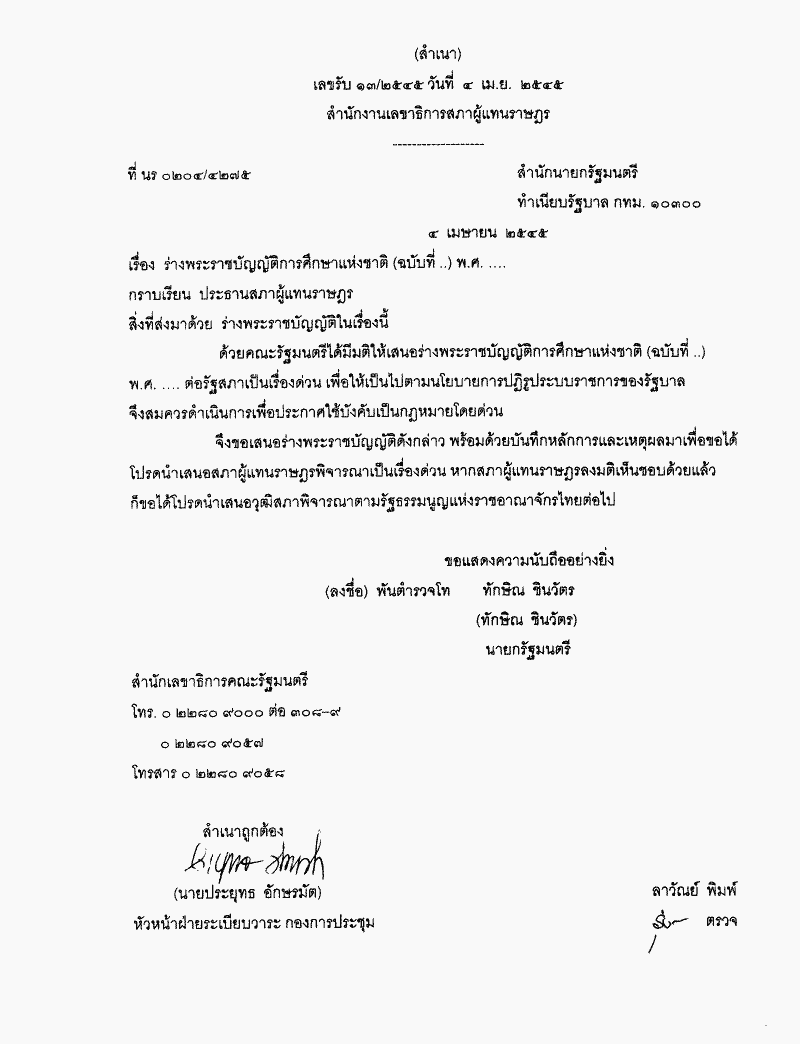 (สำเนา)
เลขรับ ๑๓/๒๕๔๕ วันที่ ๔ เม.ย. ๒๕๔๕
สำนักงานเลขาธิการสภาผู้แทนราษฎร
-------------------
ที่ นร ๐๒๐๔/๔๒๗๕ สำนักนายกรัฐมนตรี
ทำเนียบรัฐบาล กทม. ๑๐๓๐๐
๔ เมษายน ๒๕๔๕
เรื่อง ร่างพระราชบัญญัติการศึกษาแห่งชาติ (ฉบับที่ ..) พ.ศ. ....
กราบเรียน ประธานสภาผู้แทนราษฎร
สิ่งที่ส่งมาด้วย ร่างพระราชบัญญัติในเรื่องนี้
ด้วยคณะรัฐมนตรีได้มีมติให้เสนอร่างพระราชบัญญัติการศึกษาแห่งชาติ (ฉบับที่ ..)
พ.ศ. .... ต่อรัฐสภาเป็นเรื่องด่วน เพื่อให้เป็นไปตามนโยบายการปฏิรูประบบราชการของรัฐบาล
จึงสมควรดำเนินการเพื่อประกาศใช้บังคับเป็นกฎหมายโดยด่วน
จึงขอเสนอร่างพระราชบัญญัติดังกล่าว พร้อมด้วยบันทึกหลักการและเหตุผลมาเพื่อขอได้
โปรดนำเสนอสภาผู้แทนราษฎรพิจารณาเป็นเรื่องด่วน หากสภาผู้แทนราษฎรลงมติเห็นชอบด้วยแล้ว
ก็ขอได้โปรดนำเสนอวุฒิสภาพิจารณาตามรัฐธรรมนูญแห่งราชอาณาจักรไทยต่อไป
ขอแสดงความนับถืออย่างยิ่ง
(ลงชื่อ) พันตำรวจโท ทักษิณ ชินวัตร
(ทักษิณ ชินวัตร)
นายกรัฐมนตรี
สำนักเลขาธิการคณะรัฐมนตรี
โทร. ๐ ๒๒๘๐ ๙๐๐๐ ต่อ ๓๐๘-๙
๐ ๒๒๘๐ ๙๐๕๗
โทรสาร ๐ ๒๒๘๐ ๙๐๕๘
สำเนาถูกต้อง
(นายประยุทธ อักษรมัต) ลาวัณย์ พิมพ์
หัวหน้าฝ่ายระเบียบวาระ กองการประชุม ตรวจ